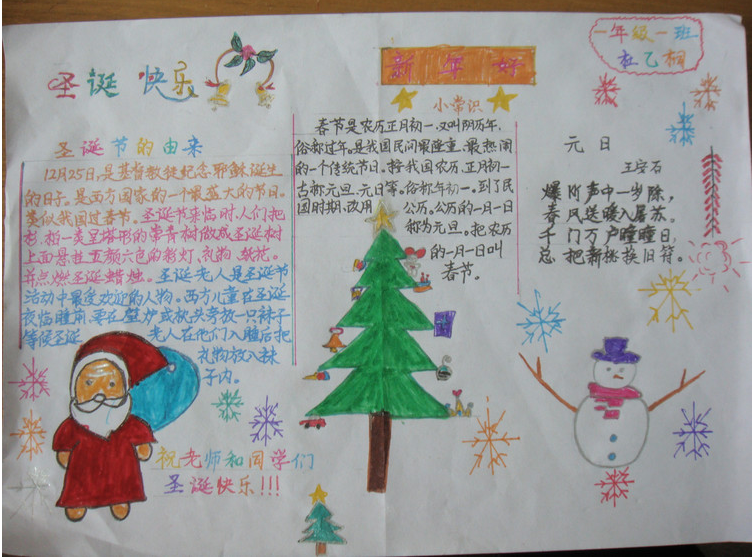 圣诞快乐
圣诞节的由来
12月25日，是基督教徒纪念耶稣诞生
的日子。是西方国家的一个最盛大的节日。
类似我国过春节。圣诞节来临时，人们把
杉、柏一类呈塔形的常青树做成圣诞树
上面悬挂五颜六色的彩灯、礼物、纸花。
并点燃圣诞蜡烛。圣诞老人是圣诞节
活动中最受欢迎的人物。西方儿童在圣诞
夜临睡前，要在壁炉或枕头旁放一只袜子
等候圣诞老人在他们入睡后把
礼物放入袜
子内。
祝老师和同学们
圣诞快乐!!!
新年好
小常识
春节是农历正月初一，又叫阴历年，
俗称过年。是我国民间最隆重、最热闹
的一个传统节日。按我国农历，正月初一
古称元旦、元日等。俗称年初一。到了民
国时期，改用公历。公历的一月一日
称为元旦。把农历
的一月一日叫
春节。
一年级一班
杜乙桐
元日
王安石
爆竹声中一岁除，
春风送暖入屠苏。
千门万户曈曈日，
总把新桃换旧符。